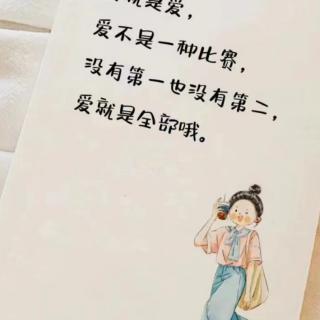 就是爱,
爱不是一种比赛,
没有第一也没有第二,
爱就是全部哦。